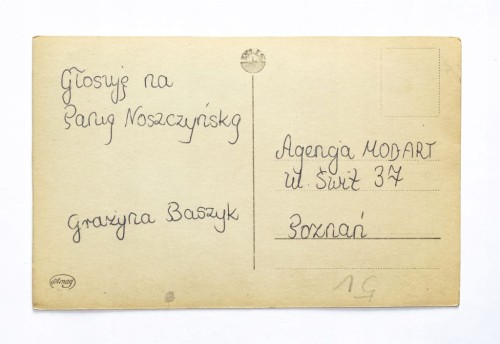 Głosuję na
Panią Noszczyńską
Grażyna Baszyk
Agencja MODART
ul. Świt 37
Poznań
1G